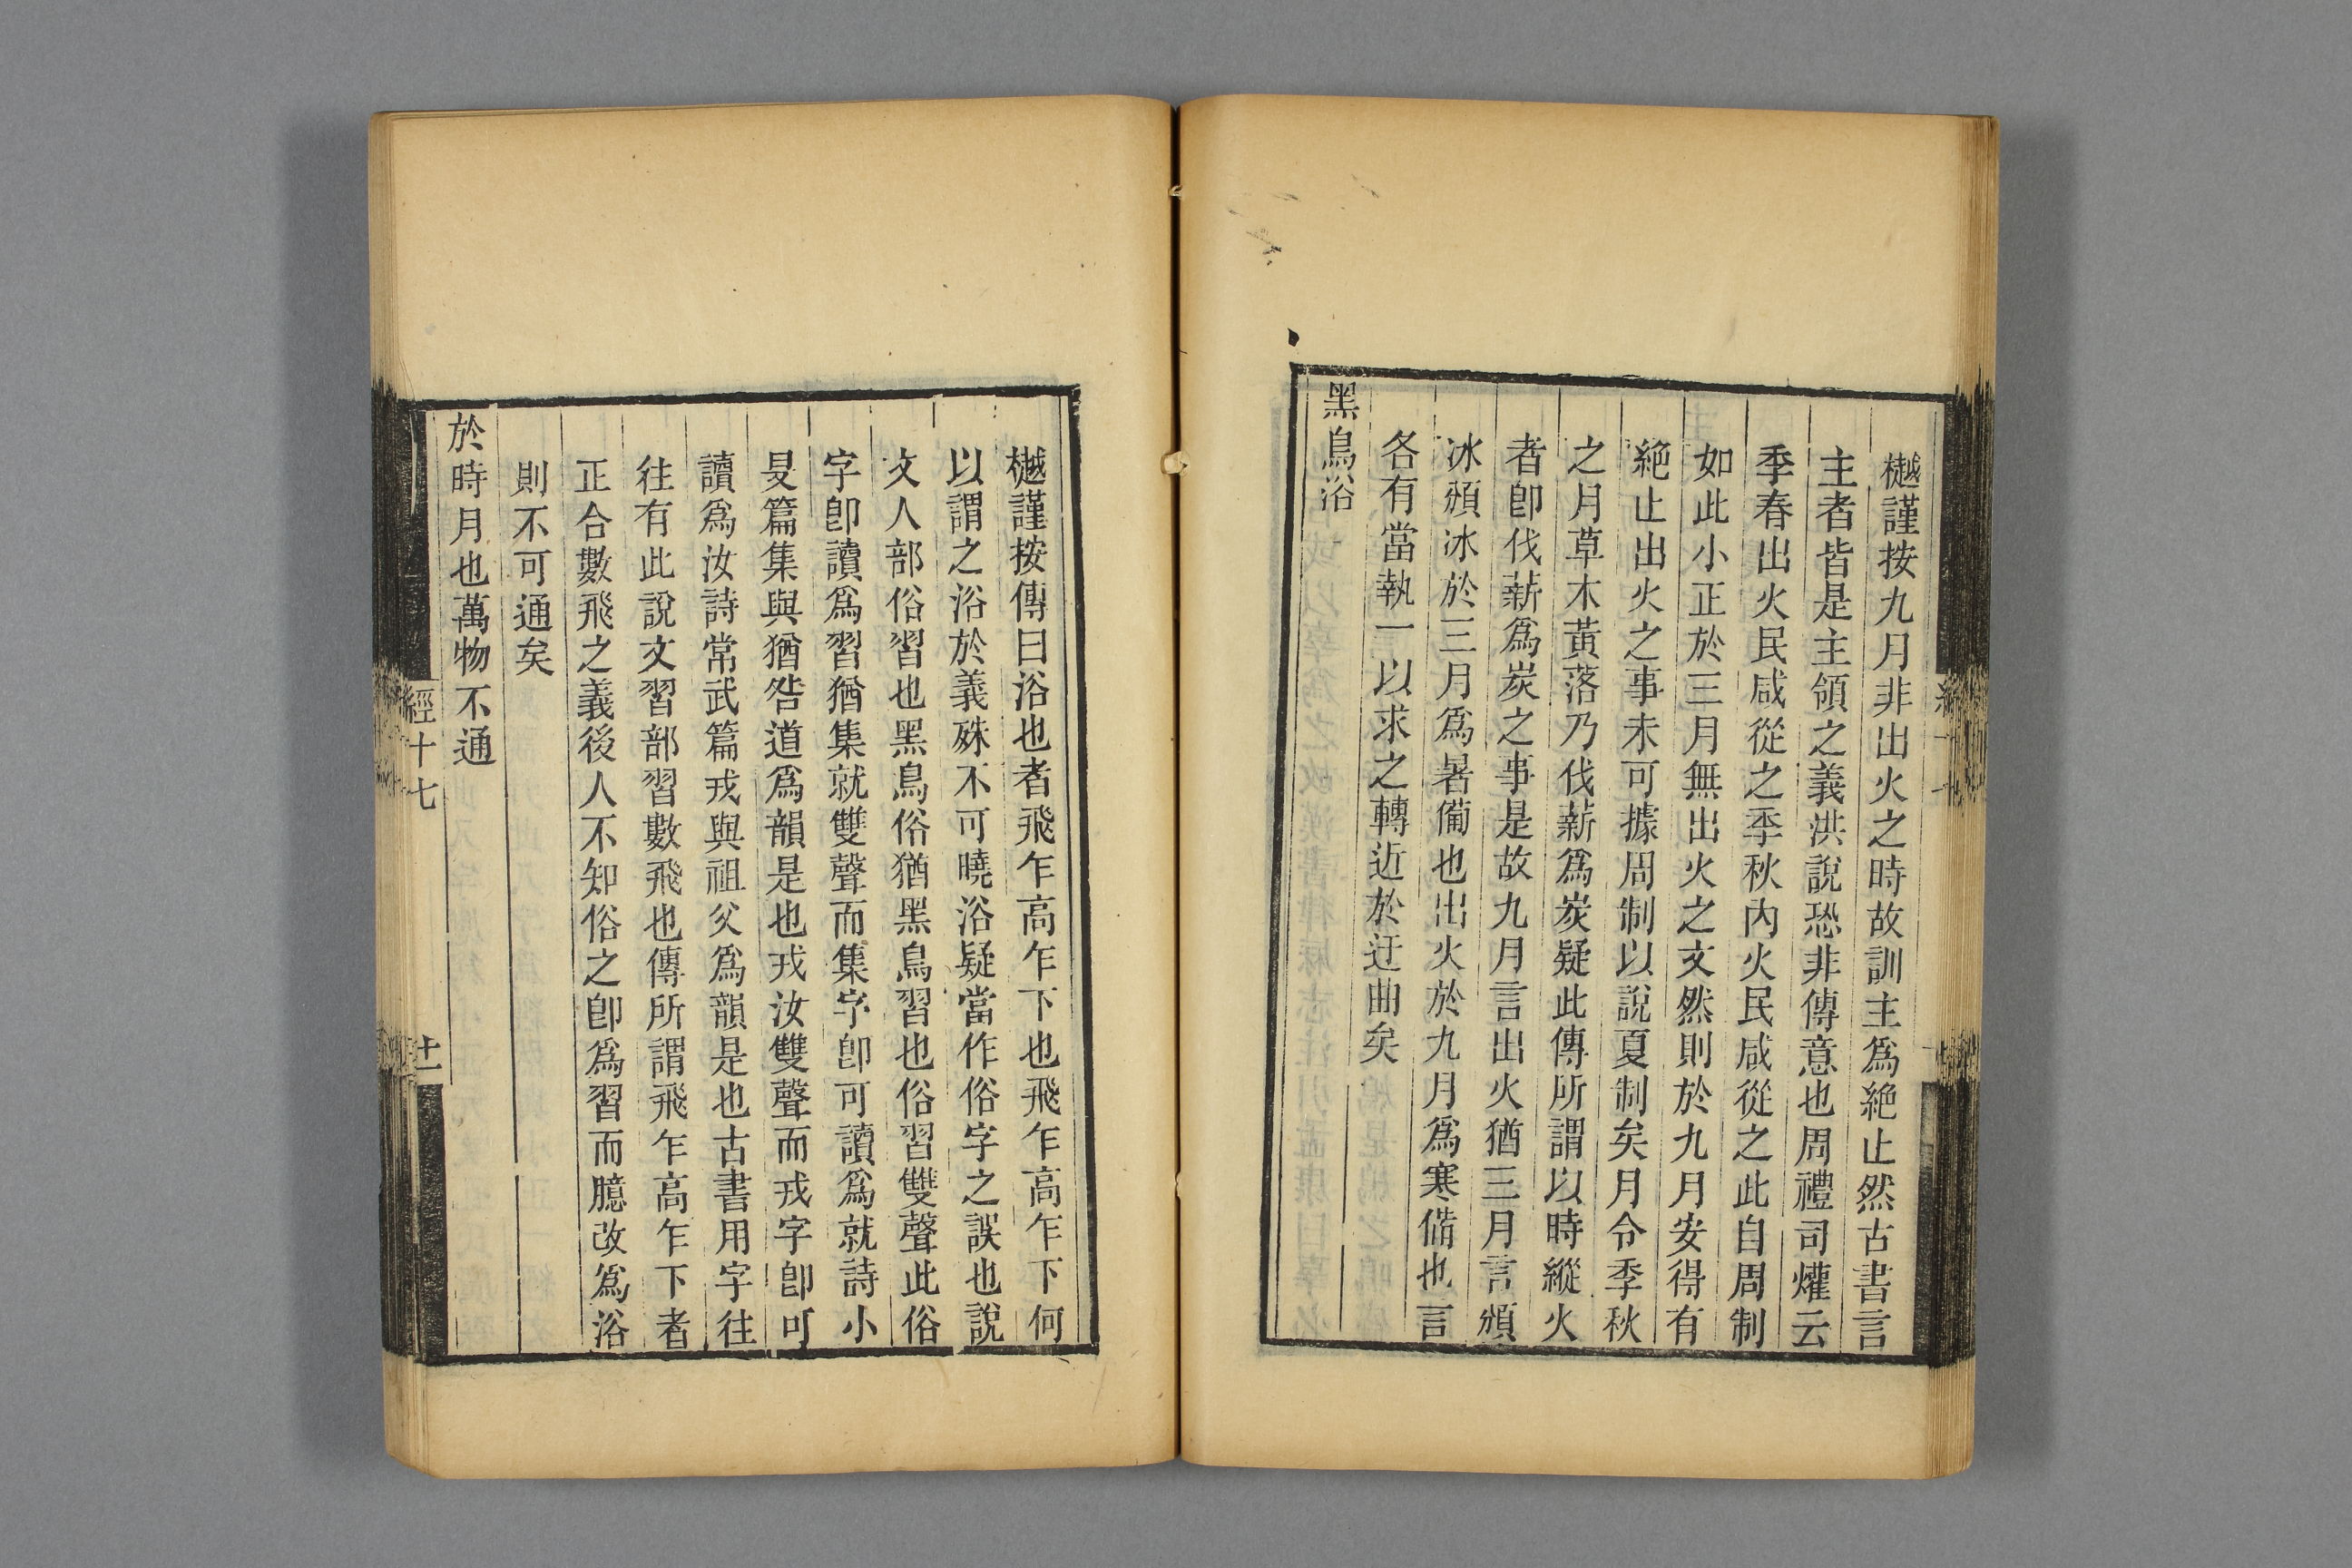 樾謹按九月非出火之時故訓主爲絶止然古書言
主者皆是主領之義洪說恐非傳意也周禮司爟云
季春出火民咸從之季秋內火民咸從之此自周制
如此小正於三月無出火之文然則於九月安得有
絶止出火之事未可據周制以說夏制矣月令季秋
之月草木黃落乃伐薪爲炭疑此傳所謂以時縱火
者卽伐薪爲炭之事是故九月言出火猶三月言頒
冰頒冰於三月爲暑備也出火於九月爲寒偹也言
各有當執一以求之轉近於迂曲矣
黑鳥浴
樾謹按傳曰浴也者飛乍高乍下也飛乍高乍下何
以謂之浴於義殊不可曉浴疑當作俗字之誤也說
文人部俗習也黑鳥俗猶黑鳥習也俗習雙聲此俗
字卽讀爲習猶集就雙聲而集字卽可讀爲就詩小
旻篇集與猶咎道爲韻是也戎汝雙聲而戎字卽可
讀爲汝詩常武篇戎與祖父爲韻是也古書用字往
往有此說文習部習數飛也傳所謂飛乍高乍下者
正合數飛之義後人不知俗之卽爲習而臆改爲浴
則不可通矣
於時月也萬物不通
經十七
十一